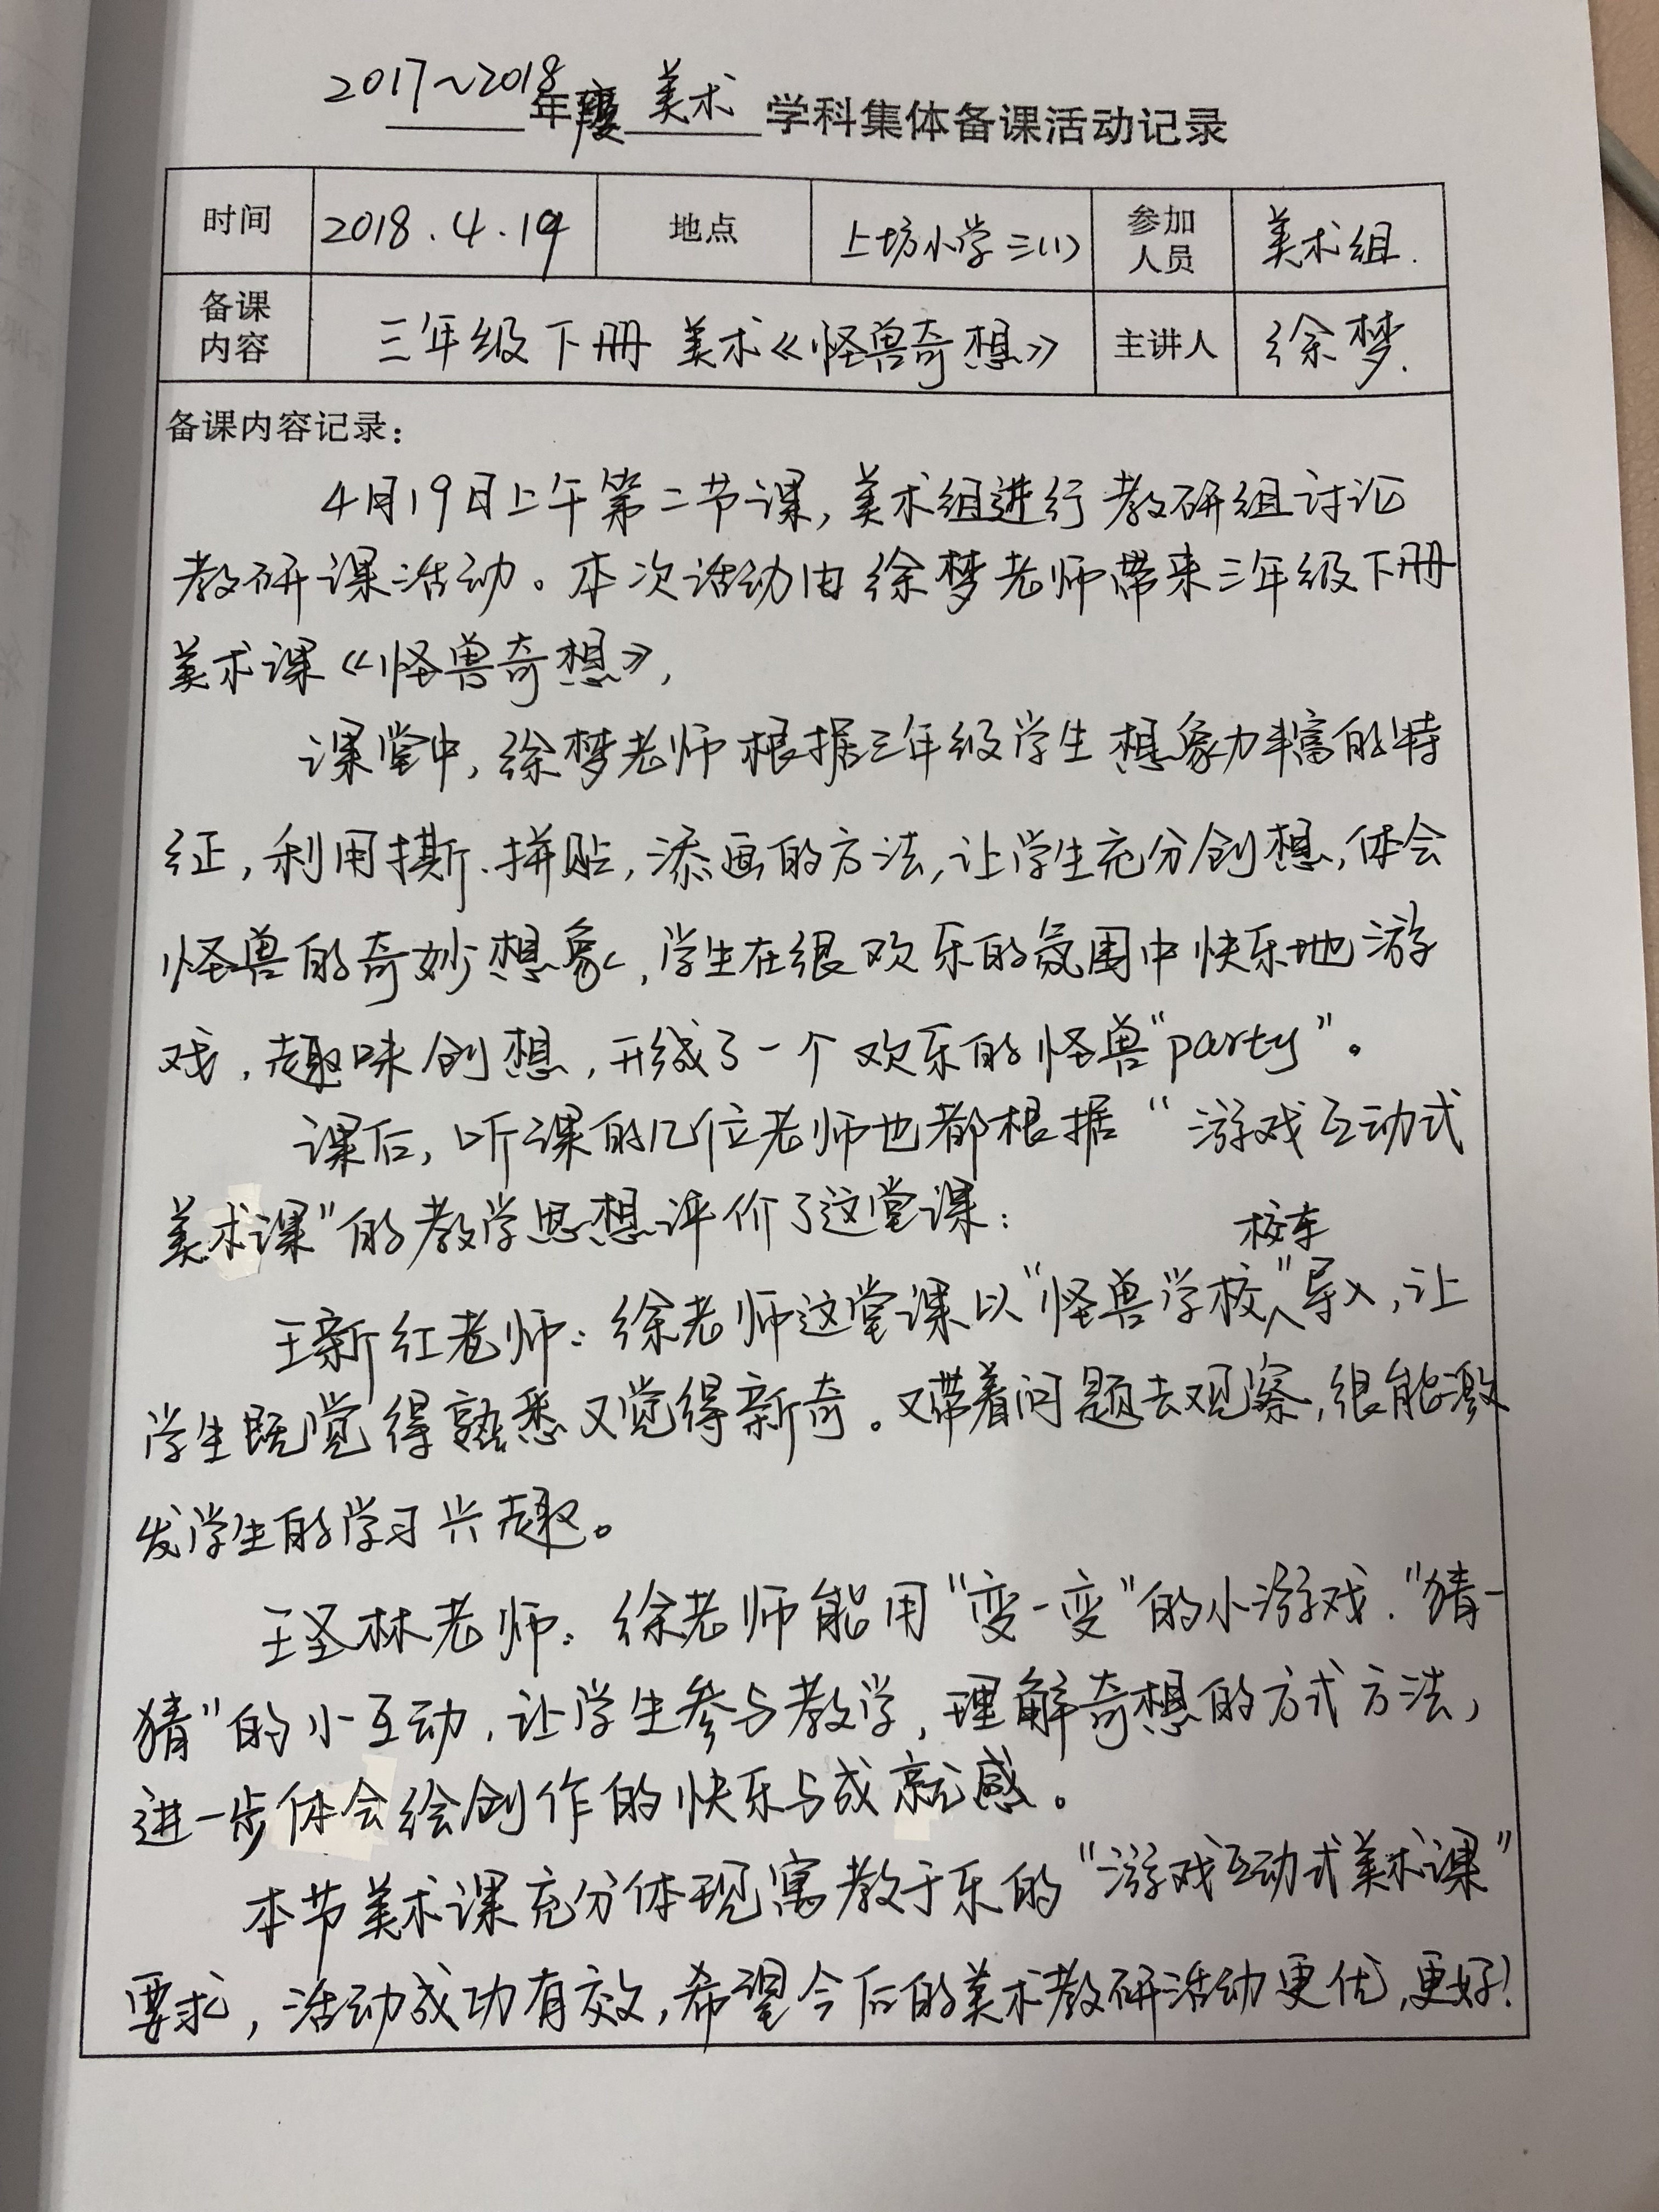 2017~2018年度 美术 学科集体备课活动记录
时间 2018.4.19 地点 上坊小学三(1) 参加人员 美术组.
备课内容 三年级下册 美术《怪兽奇想》 主讲人 徐梦.
备课内容记录:
4月19日上午第二节课,美术组进行教研组讨论
教研课活动。本次活动由徐梦老师带来三年级下册
美术课《怪兽奇想》,
课堂中,徐梦老师根据三年级学生想象力丰富的特
征,利用撕.拼贴,添画的方法,让学生充分创想,体会
怪兽的奇妙想象,学生在很欢乐的氛围中快乐地游
戏,趣味创想,形成了一个欢乐的怪兽“party”。
课后,听课的几位老师也都根据“游戏互动式
美术课”的教学思想评价了这堂课:
王新红老师:徐老师这堂课以“怪兽学校校车”导入,让
学生既觉得熟悉又觉得新奇。又带着问题去观察,很能激
发学生的学习兴趣。
王圣林老师:徐老师能用“变一变”的小游戏.“猜一
猜”的小互动,让学生参与教学,理解奇想的方式方法,
进一步体会绘创作的快乐与成就感。
本节美术课充分体现寓教于乐的“游戏互动式美术课”
要求,活动成功有效,希望今后的美术教研活动更优,更好!